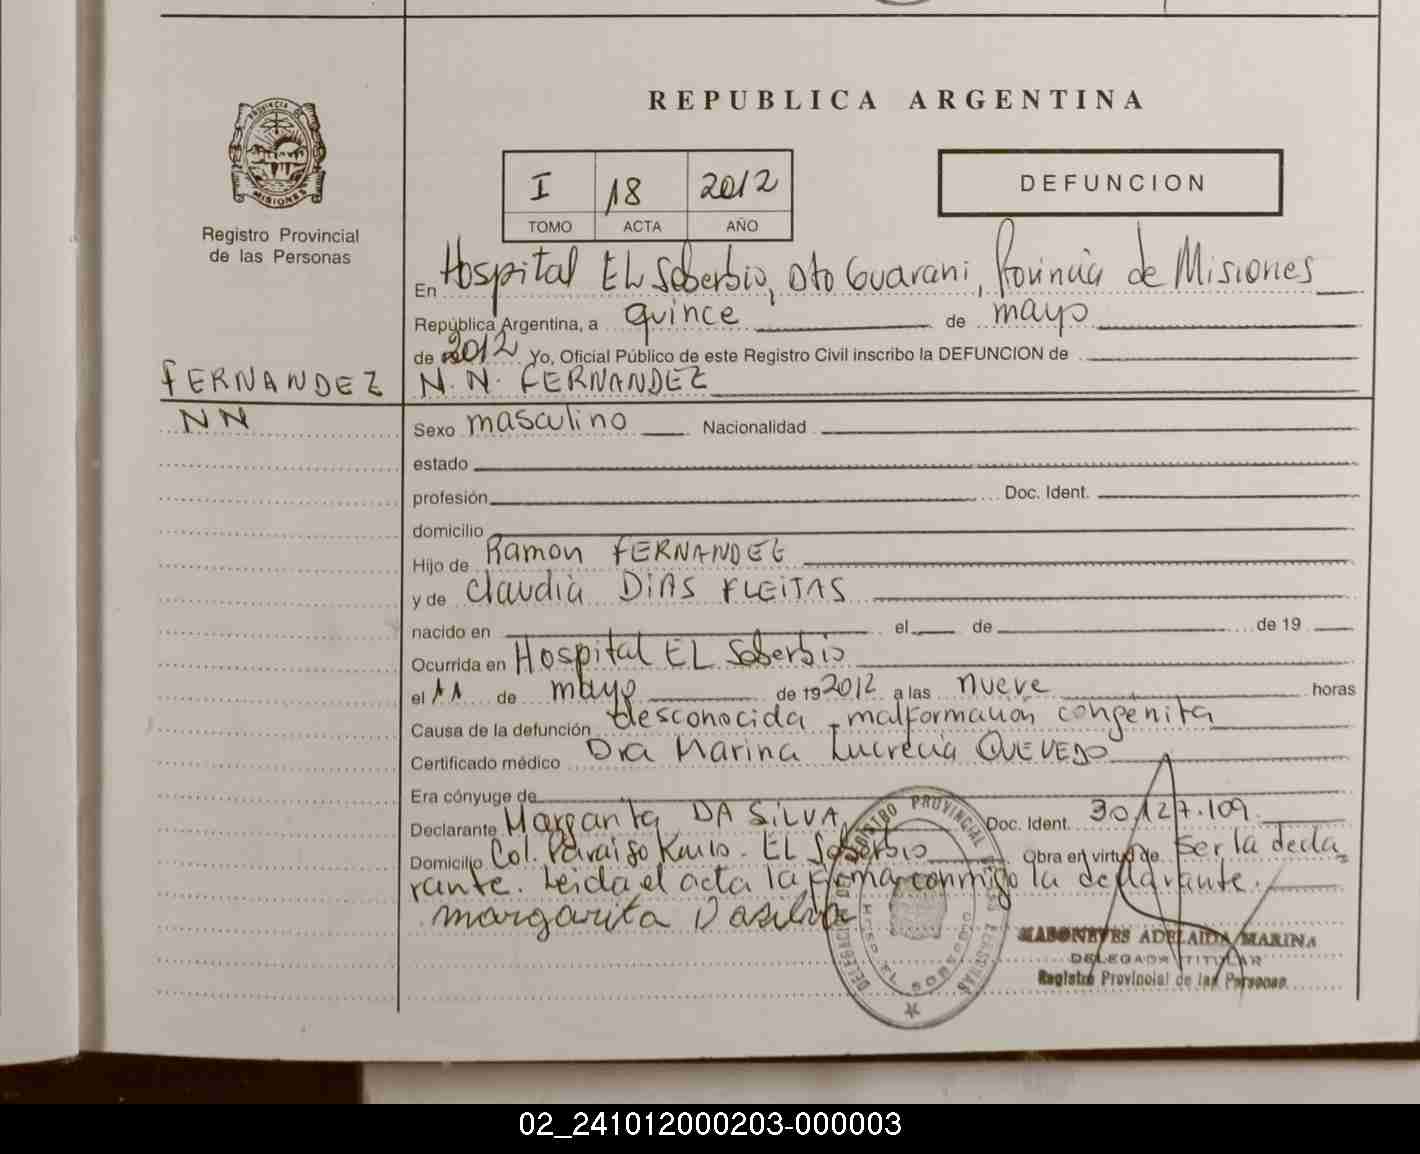 REPUBLICA ARGENTINA
PROVINCIA DE MISIONES
Registro Provincial
de las Personas
I 18 2012
TOMO ACTA AÑO
DEFUNCION
En Hospital EL Soberbio, Dto Guarani, Provincia de Misiones
República Argentina, a quince de mayo
de 2012 Yo, Oficial Público de este Registro Civil inscribo la DEFUNCION de
FERNANDEZ N.N. FERNANDEZ
NN
Sexo masculino Nacionalidad
estado
profesión Doc. Ident.
domicilio
Hijo de Ramon FERNANDEZ
y de Claudia DIAS FLEITAS
nacido en el de de 19
Ocurrida en Hospital EL Soberbio
el 11 de mayo de 19 2012 a las nueve horas
Causa de la defunción desconocida - malformación congenita
Certificado médico Dra Marina Lucrecia QUEVEDO
Era cónyuge de
Declarante Margarita DA SILVA Doc. Ident. 30.127.109
Domicilio Col. Paraiso EL Soberbio Obra en virtud de ser la decla
rante. Leida el acta la firma conmigo la declarante.
margarita Dasilva
ADELAIDA MARINA
DELEGADA TITULAR
Registro Provincial de las Personas
02_241012000203-000003